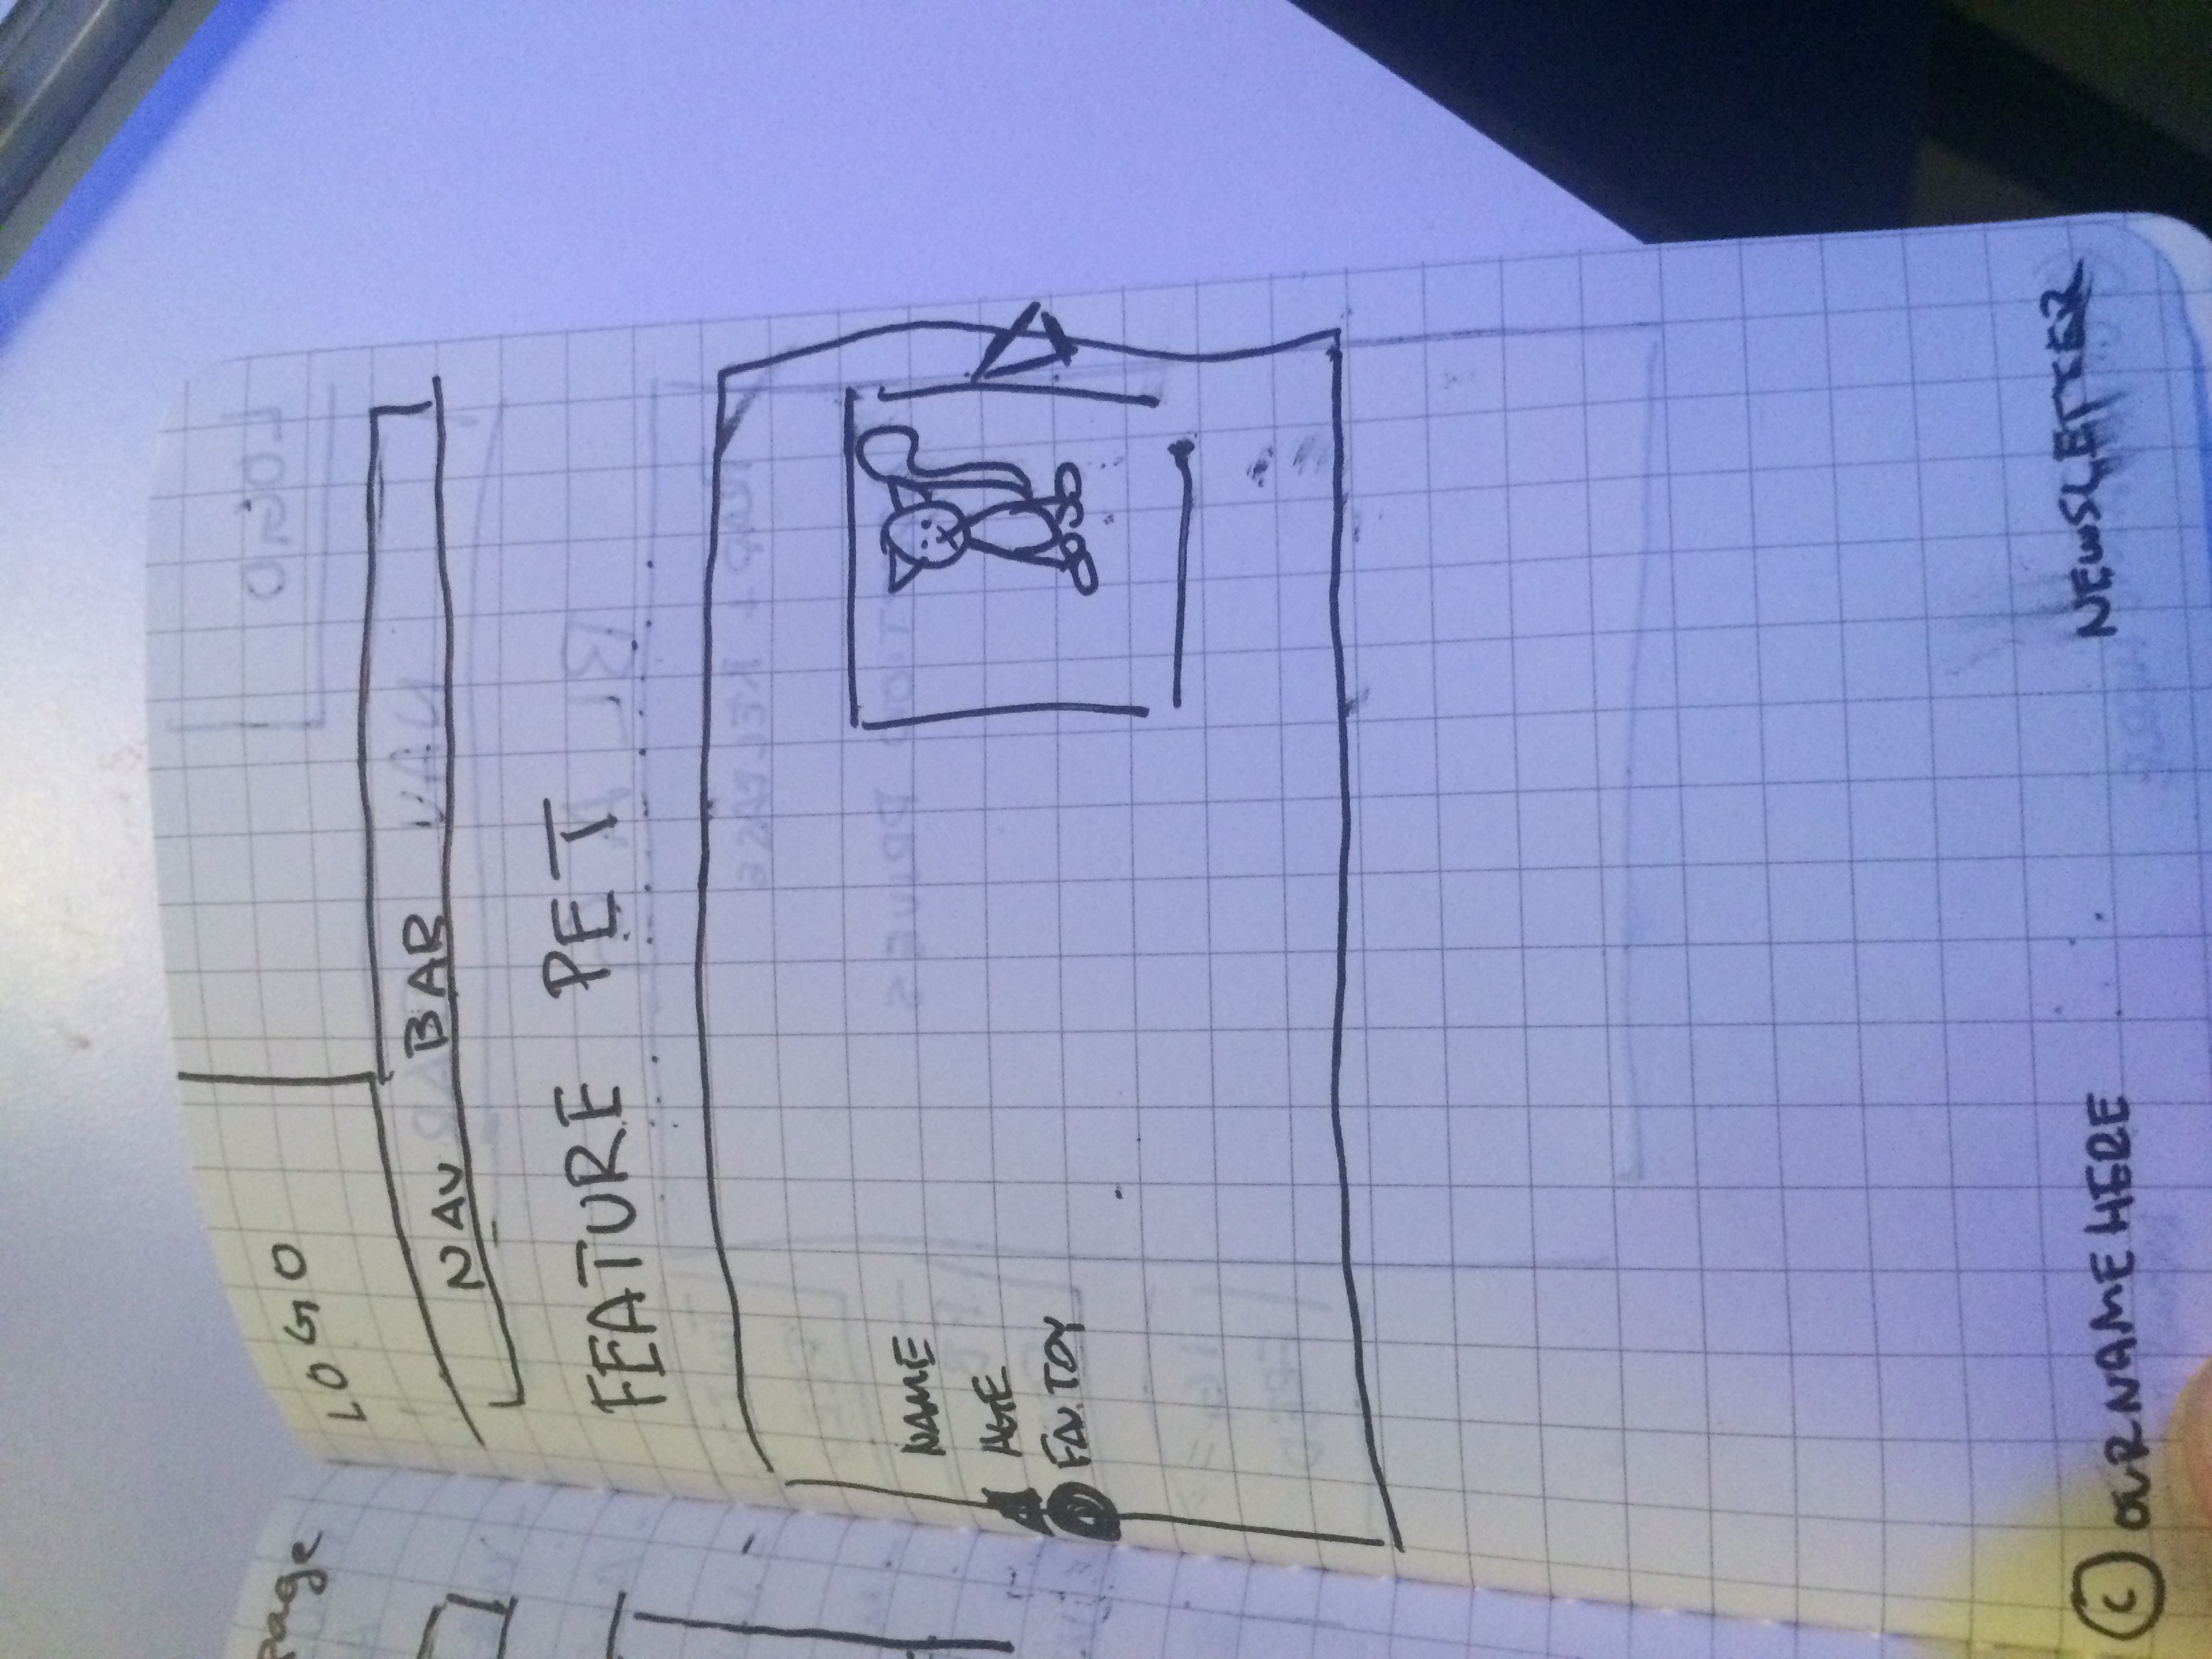 page
LOGO
NAV BAR
FEATURE PET
NAME
AGE
FAV. TOY
© OUR NAME HERE
NEWSLETTER